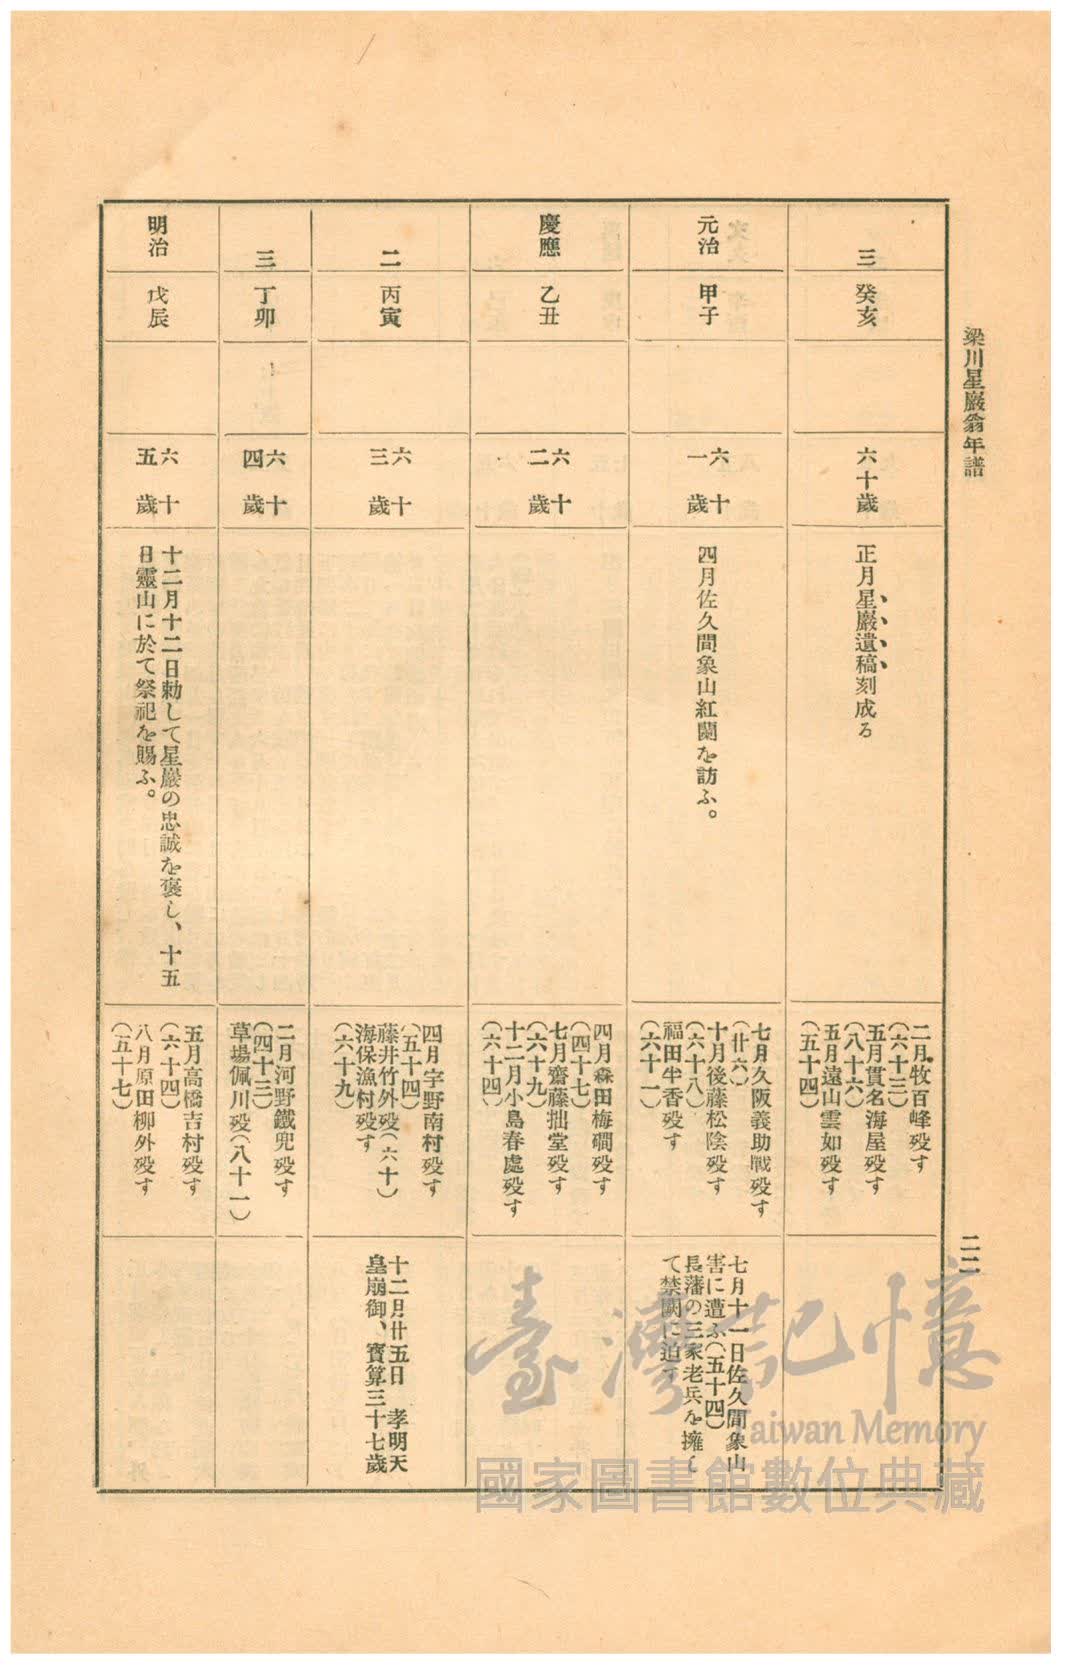 梁川星巖翁年譜
二二
三
癸亥
六十歲
正月星巖遺稿刻成る
二月牧百峰歿す
(六十三)
五月貫名海屋歿す
(八十六)
五月遠山雲如歿す
(五十四)
元治
甲子
六十
一歲
四月佐久間象山紅蘭を訪ふ。
七月久阪義助戰歿す
(廿六)
十月後藤松陰歿す
(六十八)
福田半香歿す
(六十一)
七月十一日佐久間象山
害に遭ふ(五十四)
長藩の三家老兵を擁し
て禁闕に迫す
慶應
乙丑
六十
二歲
四月森田梅磵歿す
(四十七)
七月齋藤拙堂歿す
(六十九)
十二月小島春處歿す
(六十四)
二
丙寅
六十
三歲
四月宇野南村歿す
(五十四)
藤井竹外歿(六十)
海保漁村歿す
(六十九)
十二月廿五日 孝明天
皇崩御、寶算三十七歲
三
丁卯
六十
四歲
二月河野鐵兜歿す
(四十三)
草場佩川歿(八十一)
明治
戊辰
六十
五歲
十二月十二日勅して星巖の忠誠を褒し、十五
日靈山に於て祭祀を賜ふ。
五月高橋吉村歿す
(六十四)
八月原田柳外歿す
(五十七)
臺灣記憶
Taiwan Memory
國家圖書館數位典藏